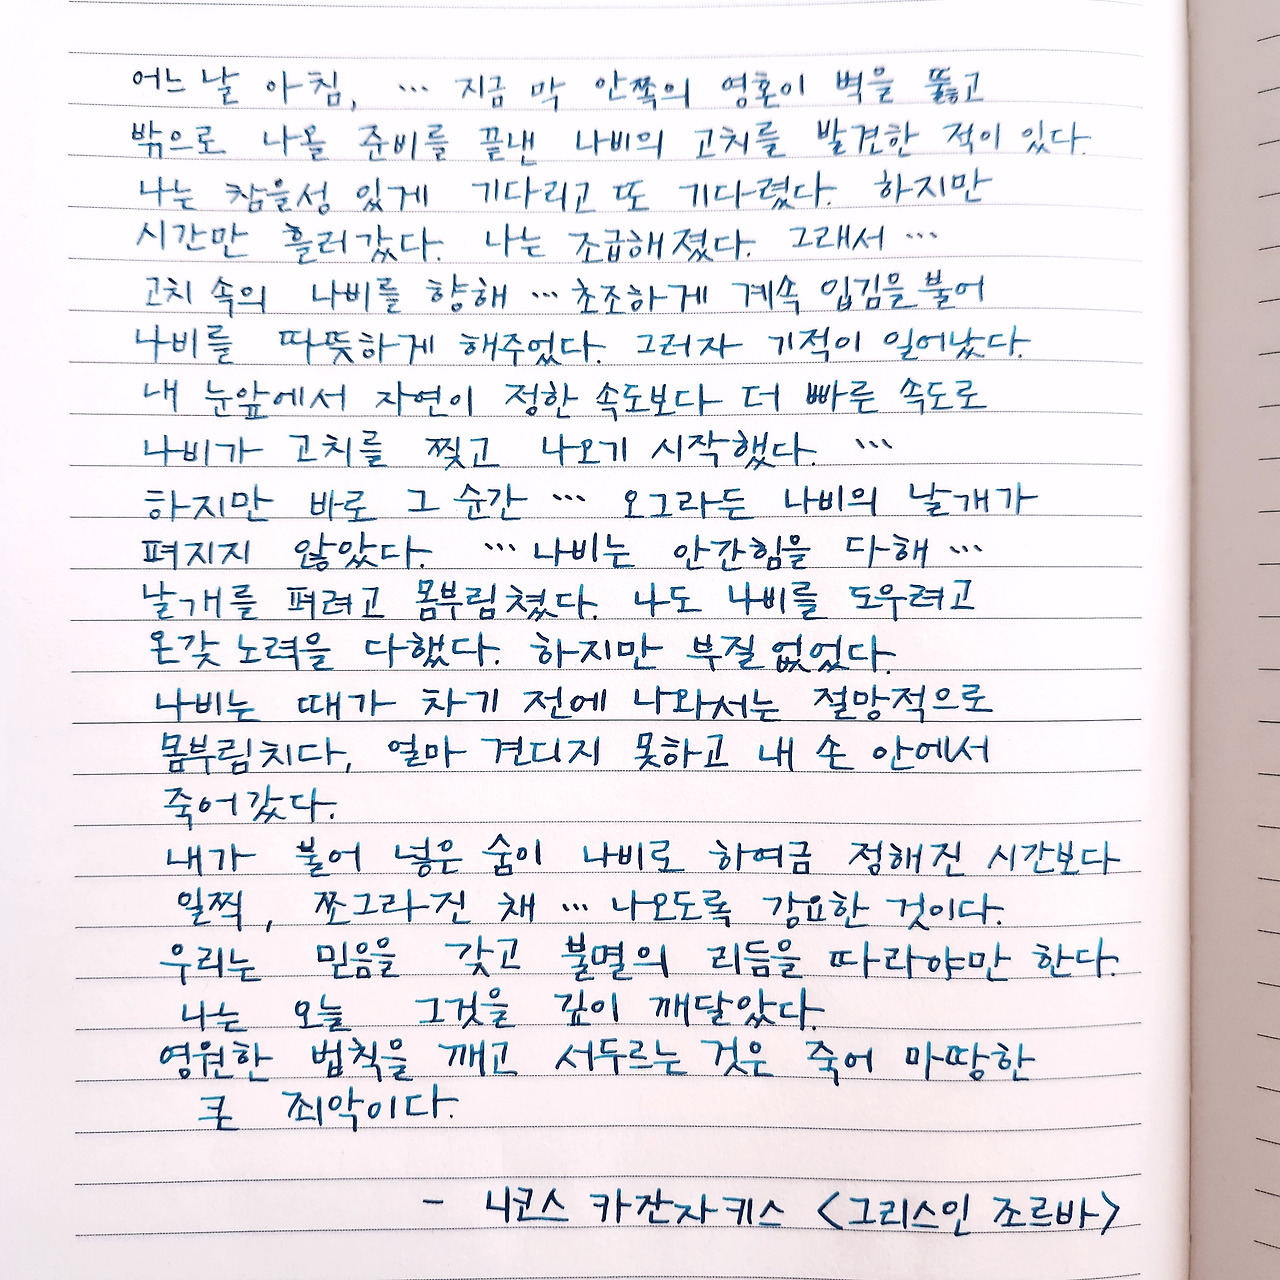 어느 날 아침, … 지금 막 안쪽의 영혼이 벽을 뚫고
밖으로 나올 준비를 끝낸 나비의 고치를 발견한 적이 있다.
나는 참을성 있게 기다리고 또 기다렸다. 하지만
시간만 흘러갔다. 나는 조급해졌다. 그래서 …
고치 속의 나비를 향해 … 초조하게 계속 입김을 불어
나비를 따뜻하게 해주었다. 그러자 기적이 일어났다.
내 눈앞에서 자연이 정한 속도보다 더 빠른 속도로
나비가 고치를 찢고 나오기 시작했다. …
하지만 바로 그 순간 … 오그라든 나비의 날개가
펴지지 않았다. … 나비는 안간힘을 다해 …
날개를 펴려고 몸부림쳤다. 나도 나비를 도우려고
온갖 노력을 다했다. 하지만 부질없었다.
나비는 때가 차기 전에 나와서는 절망적으로
몸부림치다, 얼마 견디지 못하고 내 손 안에서
죽어갔다.
내가 불어 넣은 숨이 나비로 하여금 정해진 시간보다
일찍, 쪼그라진 채 … 나오도록 강요한 것이다.
우리는 믿음을 갖고 불멸의 리듬을 따라야만 한다.
나는 오늘 그것을 깊이 깨달았다.
영원한 법칙을 깨고 서두르는 것은 죽어 마땅한
큰 죄악이다.
- 니코스 카잔자키스 <그리스인 조르바>